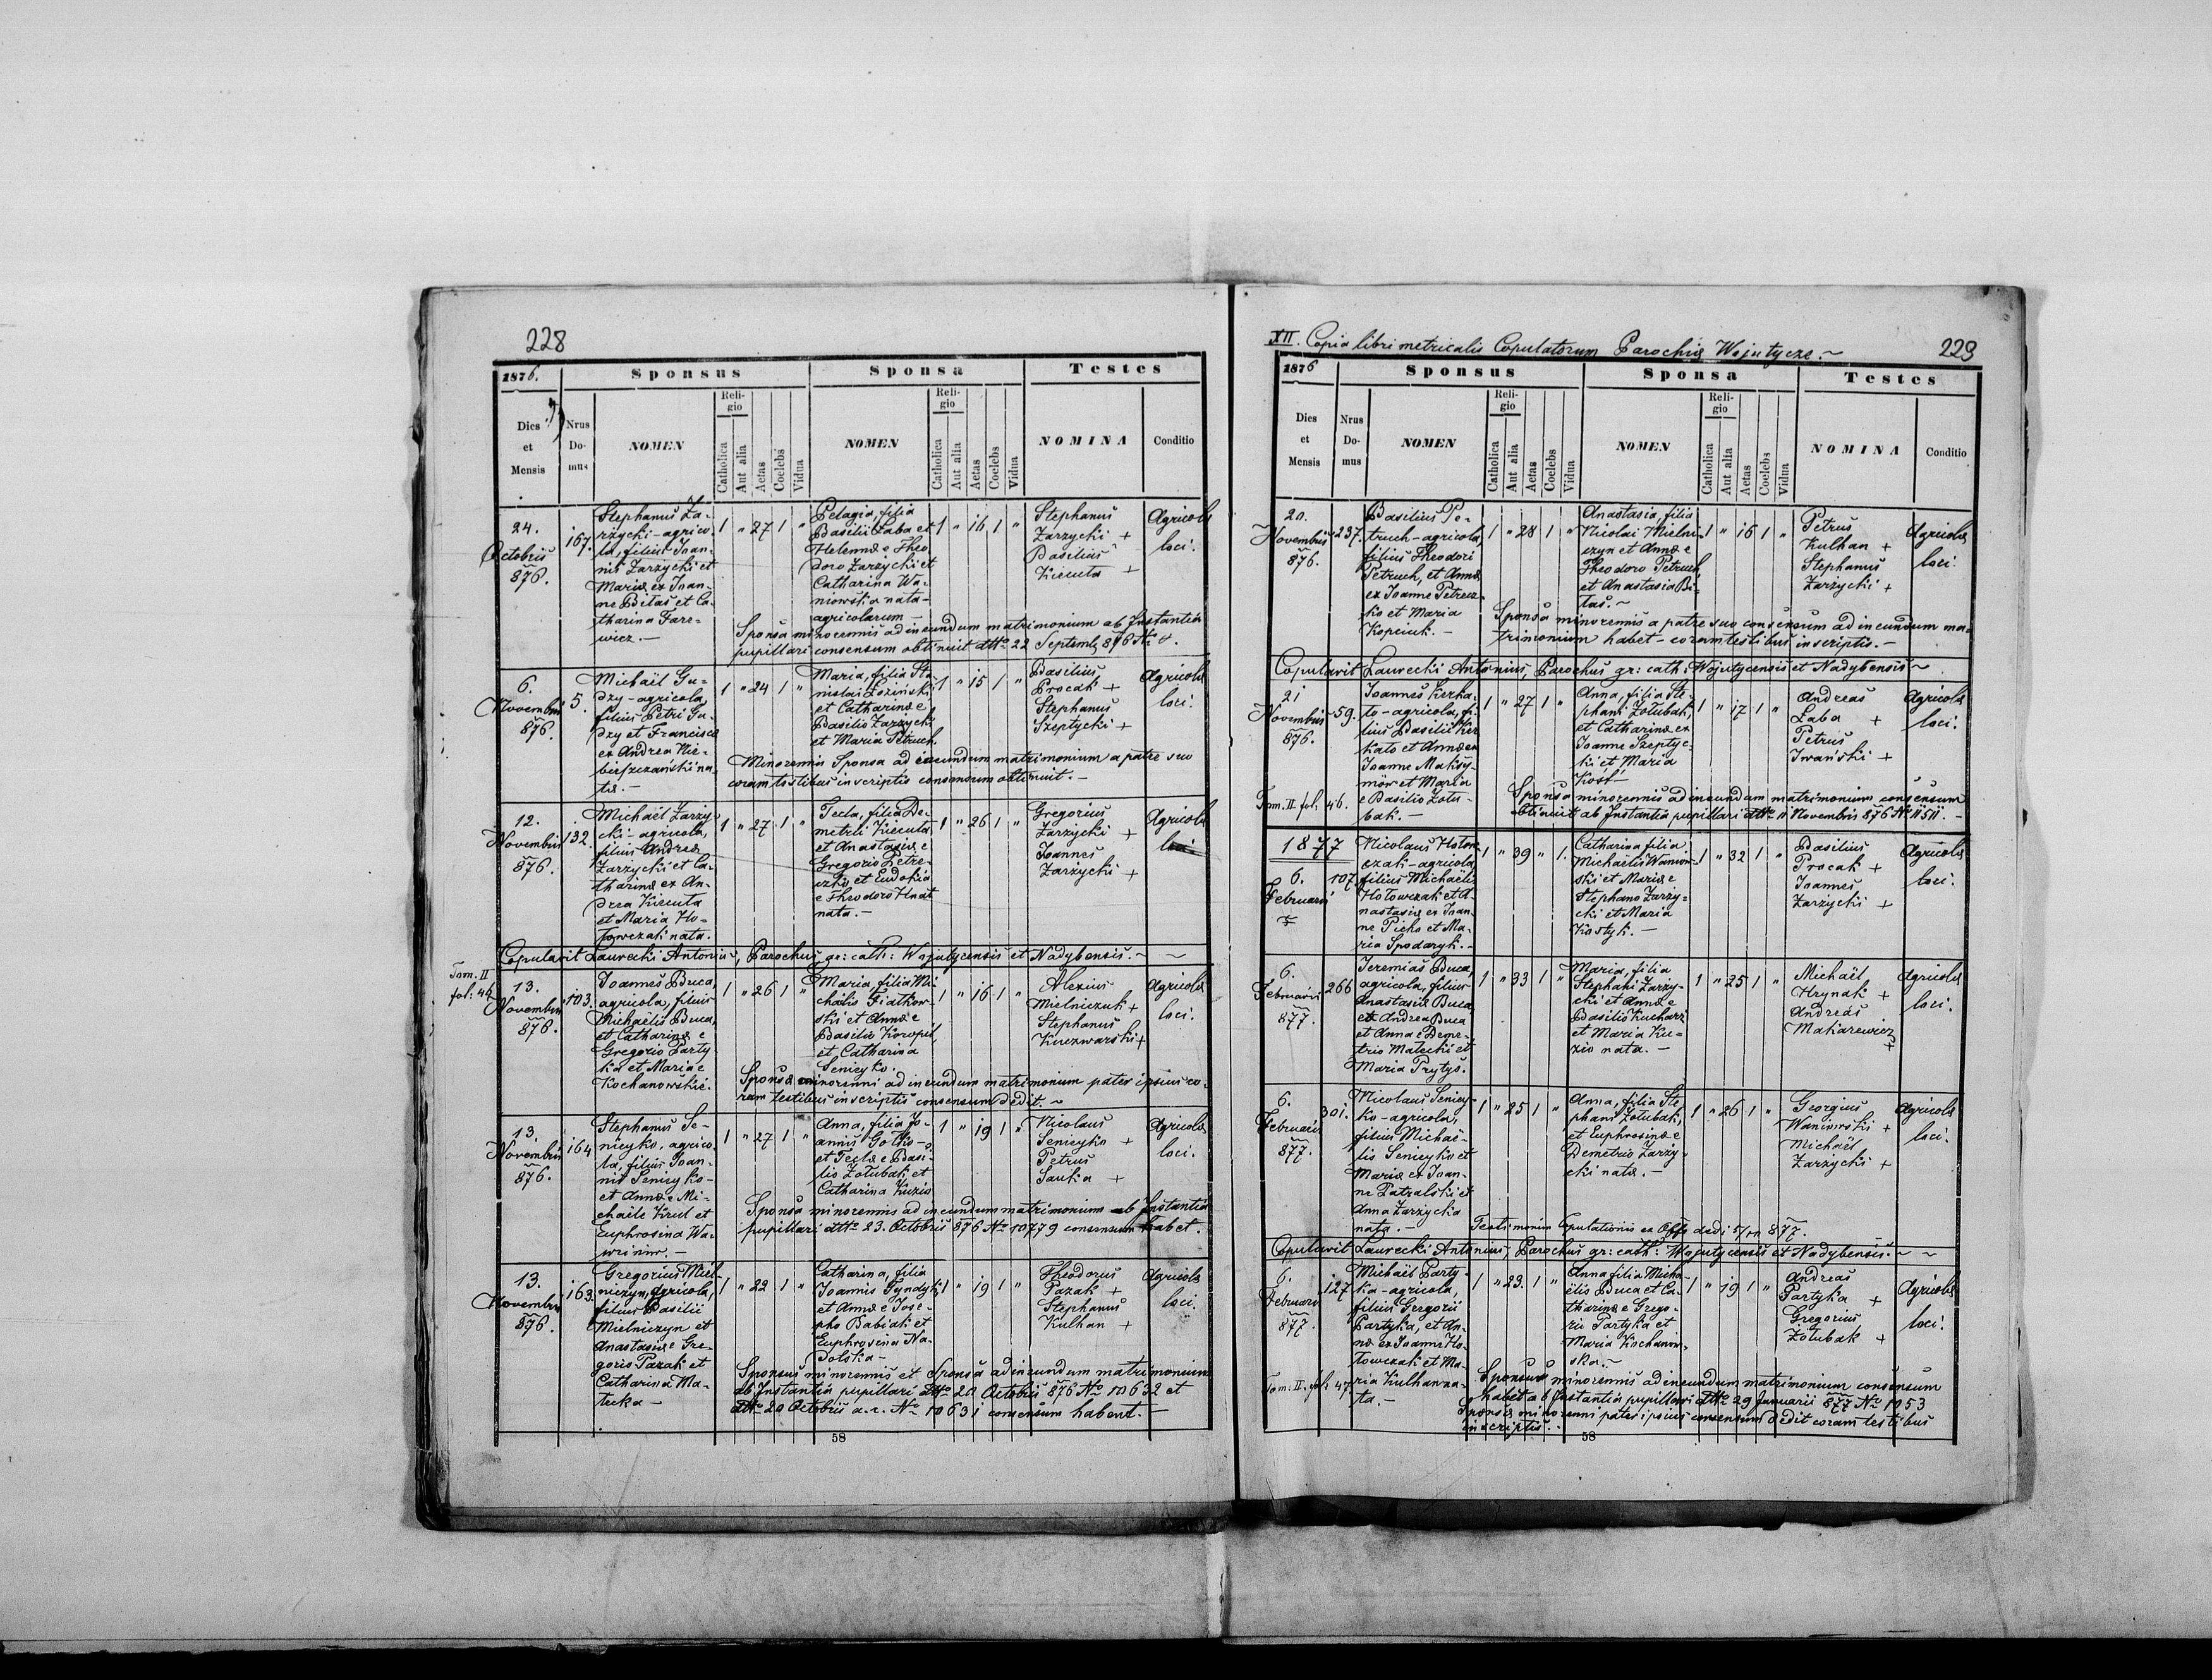 228
1876.
Sponsus
Sponsa
Testes
Dies
et
Mensis
Nrus
Do-
mus
NOMEN
Reli-
gio
Catholica
Aut alia
Aetas
Coelebs
Vidua
NOMEN
Reli-
gio
Catholica
Aut alia
Aetas
Coelebs
Vidua
NOMINA
Conditio
24.
Octobris
876.
167.
Stephanus Za-
rzycki - agrico-
la, filius Ioan-
nis Zarzycki et
Mariæ ex Ioan-
ne Bilas et Ca-
tharina Fare-
wicz. -
1 " 27 1 "
Pelagia, filia
Basilii Laba et
Helennæ e Theo
doro Zarzycki et
Catharina Wa-
niowska nata -
agricolarum -
1 " 16 1 "
Stephanus
Zarzycki +
Basilius
Kicuta +
Agricolæ
loci.
Sponsa minorennis ad ineundum matrimonium ab Instantia
pupillari consensum obtinuit dtto 22 Septemb. 876 No
6.
Novembris
876.
5.
Michaël Gu-
dzy - agricola
filius Petri Gu-
dzy et Francisca
ex Andrea Nie-
bieszczański na
ta. -
1 " 24 1 "
Maria, filia Sta-
nislai Łoziński
et Catharinæ e
Basilio Zarzycki
et Maria Petruch.
1 " 15 1 "
Basilius
Procak +
Stephanus
Szeptycki +
Agricolæ
loci.
Minorennis Sponsa ad ineundum matrimonium a patre suo
coram testibus inscriptis consensum obtinuit. -
12.
Novembris
876.
132.
Michaël Zarzy
cki - agricola,
filius Andreæ
Zarzycki et Ca-
tharinæ ex An-
drea Kicuta
et Maria Ho-
łowczak nata.
1 " 27 1 "
Tecla, filia De-
metrii Kicuta
et Anastasiæ e
Gregorio Petre-
czko et Eudokia
e Theodoro Hnat
nata. -
1 " 26 1 "
Gregorius
Zarzycki +
Joannes
Zarzycki +
Agricolæ
loci
Copulavit Laurecki Antonius, Parochus gr: cath: Wojutycensis et Nadybensis. ~
Tom. II
fol: 46
13.
Novembris
876.
103.
Joannes Buca,
agricola, filius
Michaelis Buca,
et Catharinæ e
Gregorio Party-
ka et Maria e
Kochanowskie.
1 " 26 1 "
Maria, filia Mi-
chælis Fiatkow-
ski et Annæ e
Basilio Koropil,
et Catharina
Senicyko.
1 " 16 1 "
Alexius
Mielniczuk +
Stephanus
Kuczwarski +
Agricolæ
loci.
Sponsæ minorenni ad ineundum matrimonium pater ipsius co-
ram testibus inscriptis consensum dedit. ~
13.
Novembris
876.
164
Stephanus Se-
nicyko, agrico-
la, filius Ioan-
nis Senicyko -
et Annæ e Mi-
chaele Krul et
Euphrosina Wa-
wriniw. -
1 " 27 1 "
Anna, filia Jo-
annis Gotko -
et Teclæ e Basi-
lio Zołubak et
Catharina Kuzio
1 " 19 1 "
Nicolaus
Senicyko +
Petrus
Sauka +
Agricolæ
loci.
Sponsa minorennis ad ineundum matrimonium ab Instantia
pupillari dtto 23. Octobris 876 No 10779 consensum habet.
13.
Novembris
876.
163.
Gregorius Miel-
niczyn, agricola,
filius Basilii
Mielniczyn et
Anastasiæ e Gre-
gorio Pazak et
Catharina Ma-
teka -
1 " 22 1 "
Catharina, filia
Joannis Tyndyk,
et Annæ e Jose-
pho Babiak et
Euphrosina Na-
dolska -
1 " 19 1 "
Theodorus
Pazak +
Stephanus
Kulhan +
Agricolæ
loci.
Sponsus minorennis et Sponsa ad ineundum matrimonium
ab Instantia pupillari dtto 20 Octobris 876 No 10632 et
dtto 20 Octobris a. c. No 10631 consensum habent. -
58
XII. Copia libri metricalis Copulatorum Parochiæ Wojutycze. ~
229
1876
Sponsus
Sponsa
Testes
Dies
et
Mensis
Nrus
Do-
mus
NOMEN
Reli-
gio
Catholica
Aut alia
Aetas
Coelebs
Vidua
NOMEN
Reli-
gio
Catholica
Aut alia
Aetas
Coelebs
Vidua
NOMINA
Conditio
20.
Novembris
876.
237.
Basilius Pe-
truch - agricola
filius Theodori
Petruch, et Annæ
ex Joanne Petrecz-
ko et Maria
Kopciuk. -
1 " 28 1 "
Anastasia, filia
Nicolai Mielni-
czyn et Annæ e
Theodoro Petruch,
et Anastasia Bi-
las. ~
1 " 16 1 "
Petrus
Kulhan +
Stephanus
Zarzycki +
Agricolæ
loci.
Sponsa minorennis a patre suo consensum ad ineundum ma-
trimonium habet - coram testibus inscriptis. -
Copulavit Laurecki Antonius, Parochus gr: cath: Wojutycensis et Nadybensis ~
21
Novembris
876.
59.
Joannes Kerka-
to - agricola, fi-
lius Basilii Ker
kato et Annæ ex
Joanne Maksy-
mów et Maria
e Basilio Zołu-
bak. -
1 " 27 1 "
Anna, filia Ste-
phani Zołubak,
et Catharinæ ex
Joanne Szeptyc-
ki et Maria
Kość
1 " 17 1 "
Andreas
Laba +
Petrus
Iwański +
Agricolæ
loci.
Tom. II. fol. 46.
Sponsa minorennis ad ineundum matrimonium consensum
obtinuit ab Instantia pupillari dtto 11 Novembris 876 No 11511. -
1877
6.
Februarii
107.
Nicolaus Hołow-
czak - agricola
filius Michaëlis
Hołowczak et A-
nastasiæ ex Ioan-
ne Picho et Ma-
ria Spodaryk. -
1 " 39 " 1.
Catharina filia
Michaëlis Waniow-
ski et Mariæ e
Stephano Zarzy-
cki et Maria
Kostyk. -
1 " 32 1 "
Basilius
Procak +
Joannes
Zarzycki +
Agricolæ
loci.
6.
Februarii
877.
266
Jeremias Buca,
agricola, filius
Anastasiæ Buca,
ex Andrea Buca
et Anna e Deme-
trio Matecki et
Maria Prytys.
1 " 33 1 "
Maria, filia
Stephani Zarzy-
cki et Annæ e
Basilio Kucharz
et Maria Ku-
zio nata. -
1 " 25 1 "
Michaël
Hrynak +
Andreas
Makarewicz
+
Agricolæ
loci.
6.
Februarii
877.
301.
Nicolaus Senicy-
ko - agricola,
filius Michaë-
lis Senicyko et
Mariæ ex Ioan-
ne Patralski et
Anna Zarzycka
nata. -
1 " 25 1 "
Anna, filia Ste
phani Zołubak,
et Euphrosinæ e
Demetrio Zarzy-
cki nata. -
1 " 26 1 "
Georgius
Waniowski +
Michaël
Zarzycki +
Agricolæ
loci.
Testimonium Copulationis ex Offo dedi 877.
Copulavit Laurecki Antonius, Parochus gr: cath: Wojutycensis et Nadybensis. ~ ~
6.
Februarii
877.
127
Michaël Party-
ka - agricola,
filius Gergorii
Partyka, et An-
næ ex Joanne Ho-
łowczak et Ma-
ria Kulhan na-
ta. -
1 " 23. 1 "
Anna filia Micha-
ëlis Buca et Ca-
tharinæ e Grego-
rio Partyka et
Maria Kochanow-
ska. ~
1 " 19 1 "
Andreas
Partyka +
Gregorius
Zołubak +
Agricolæ
loci.
Tom. II. fol. 47
Sponsus minorennis ad ineundum matrimonium consensum
habet ab Instantia pupillari dtto 29 Januarii 877 No 1053
Sponsæ minorenni pater ipsius consensum dedit coram testibus
inscriptis.
58